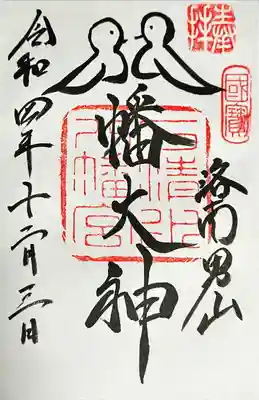 奉拝
國寳
洛南男山
八幡大神
石清水八幡宮
令和四年十二月三日